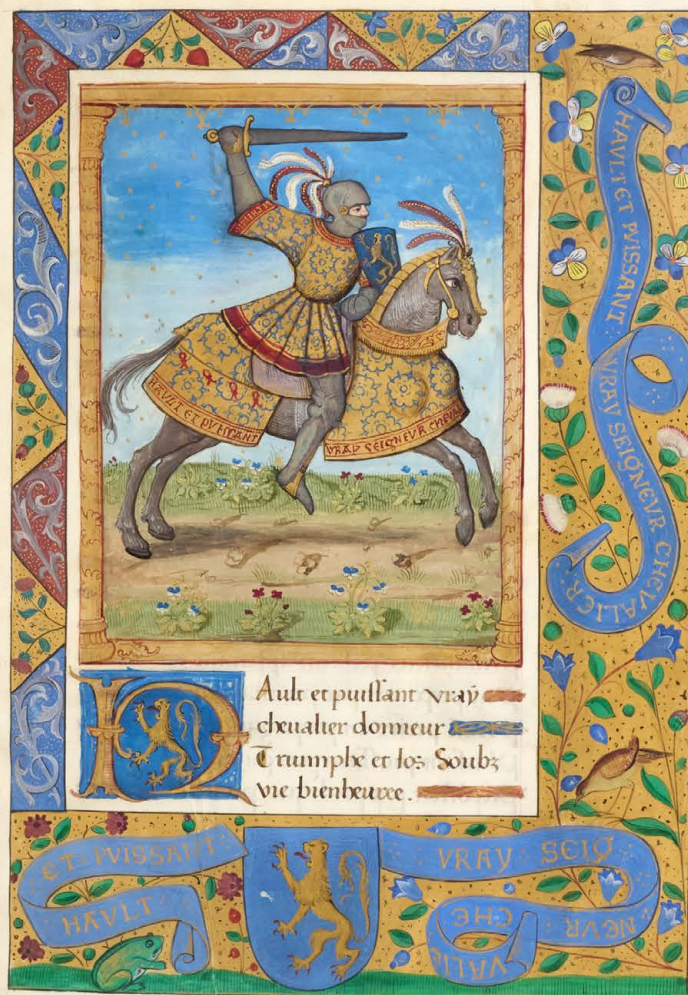 HAVLT ET PVISSANT
VRAY SEIGNEVR CHEVALIER
HAVLT ET PVISSANT
VRAY SEIGNEVR CHEVA
HAult et puissant vray
cheualier donneur
Triumphe et los Soubz
vie bienheuree.
HAVLT
ET PVISSANT
VRAY SEIG
NEVR
CHE
VALIE